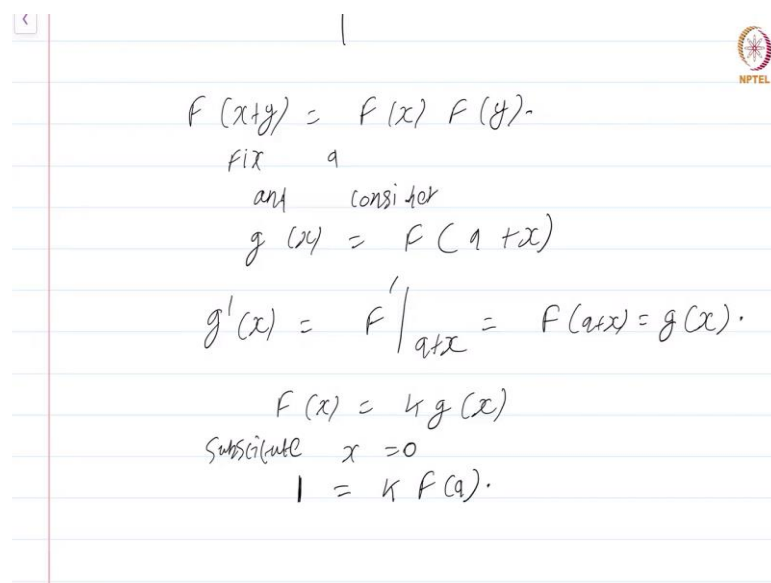 NPTEL
F(x+y) = F(x) F(y).
Fix a
and consider
g(x) = F(a+x)
g'(x) = F'|_{a+x} = F(a+x) = g(x).
F(x) = K g(x)
Substitute x = 0
1 = K F(a).